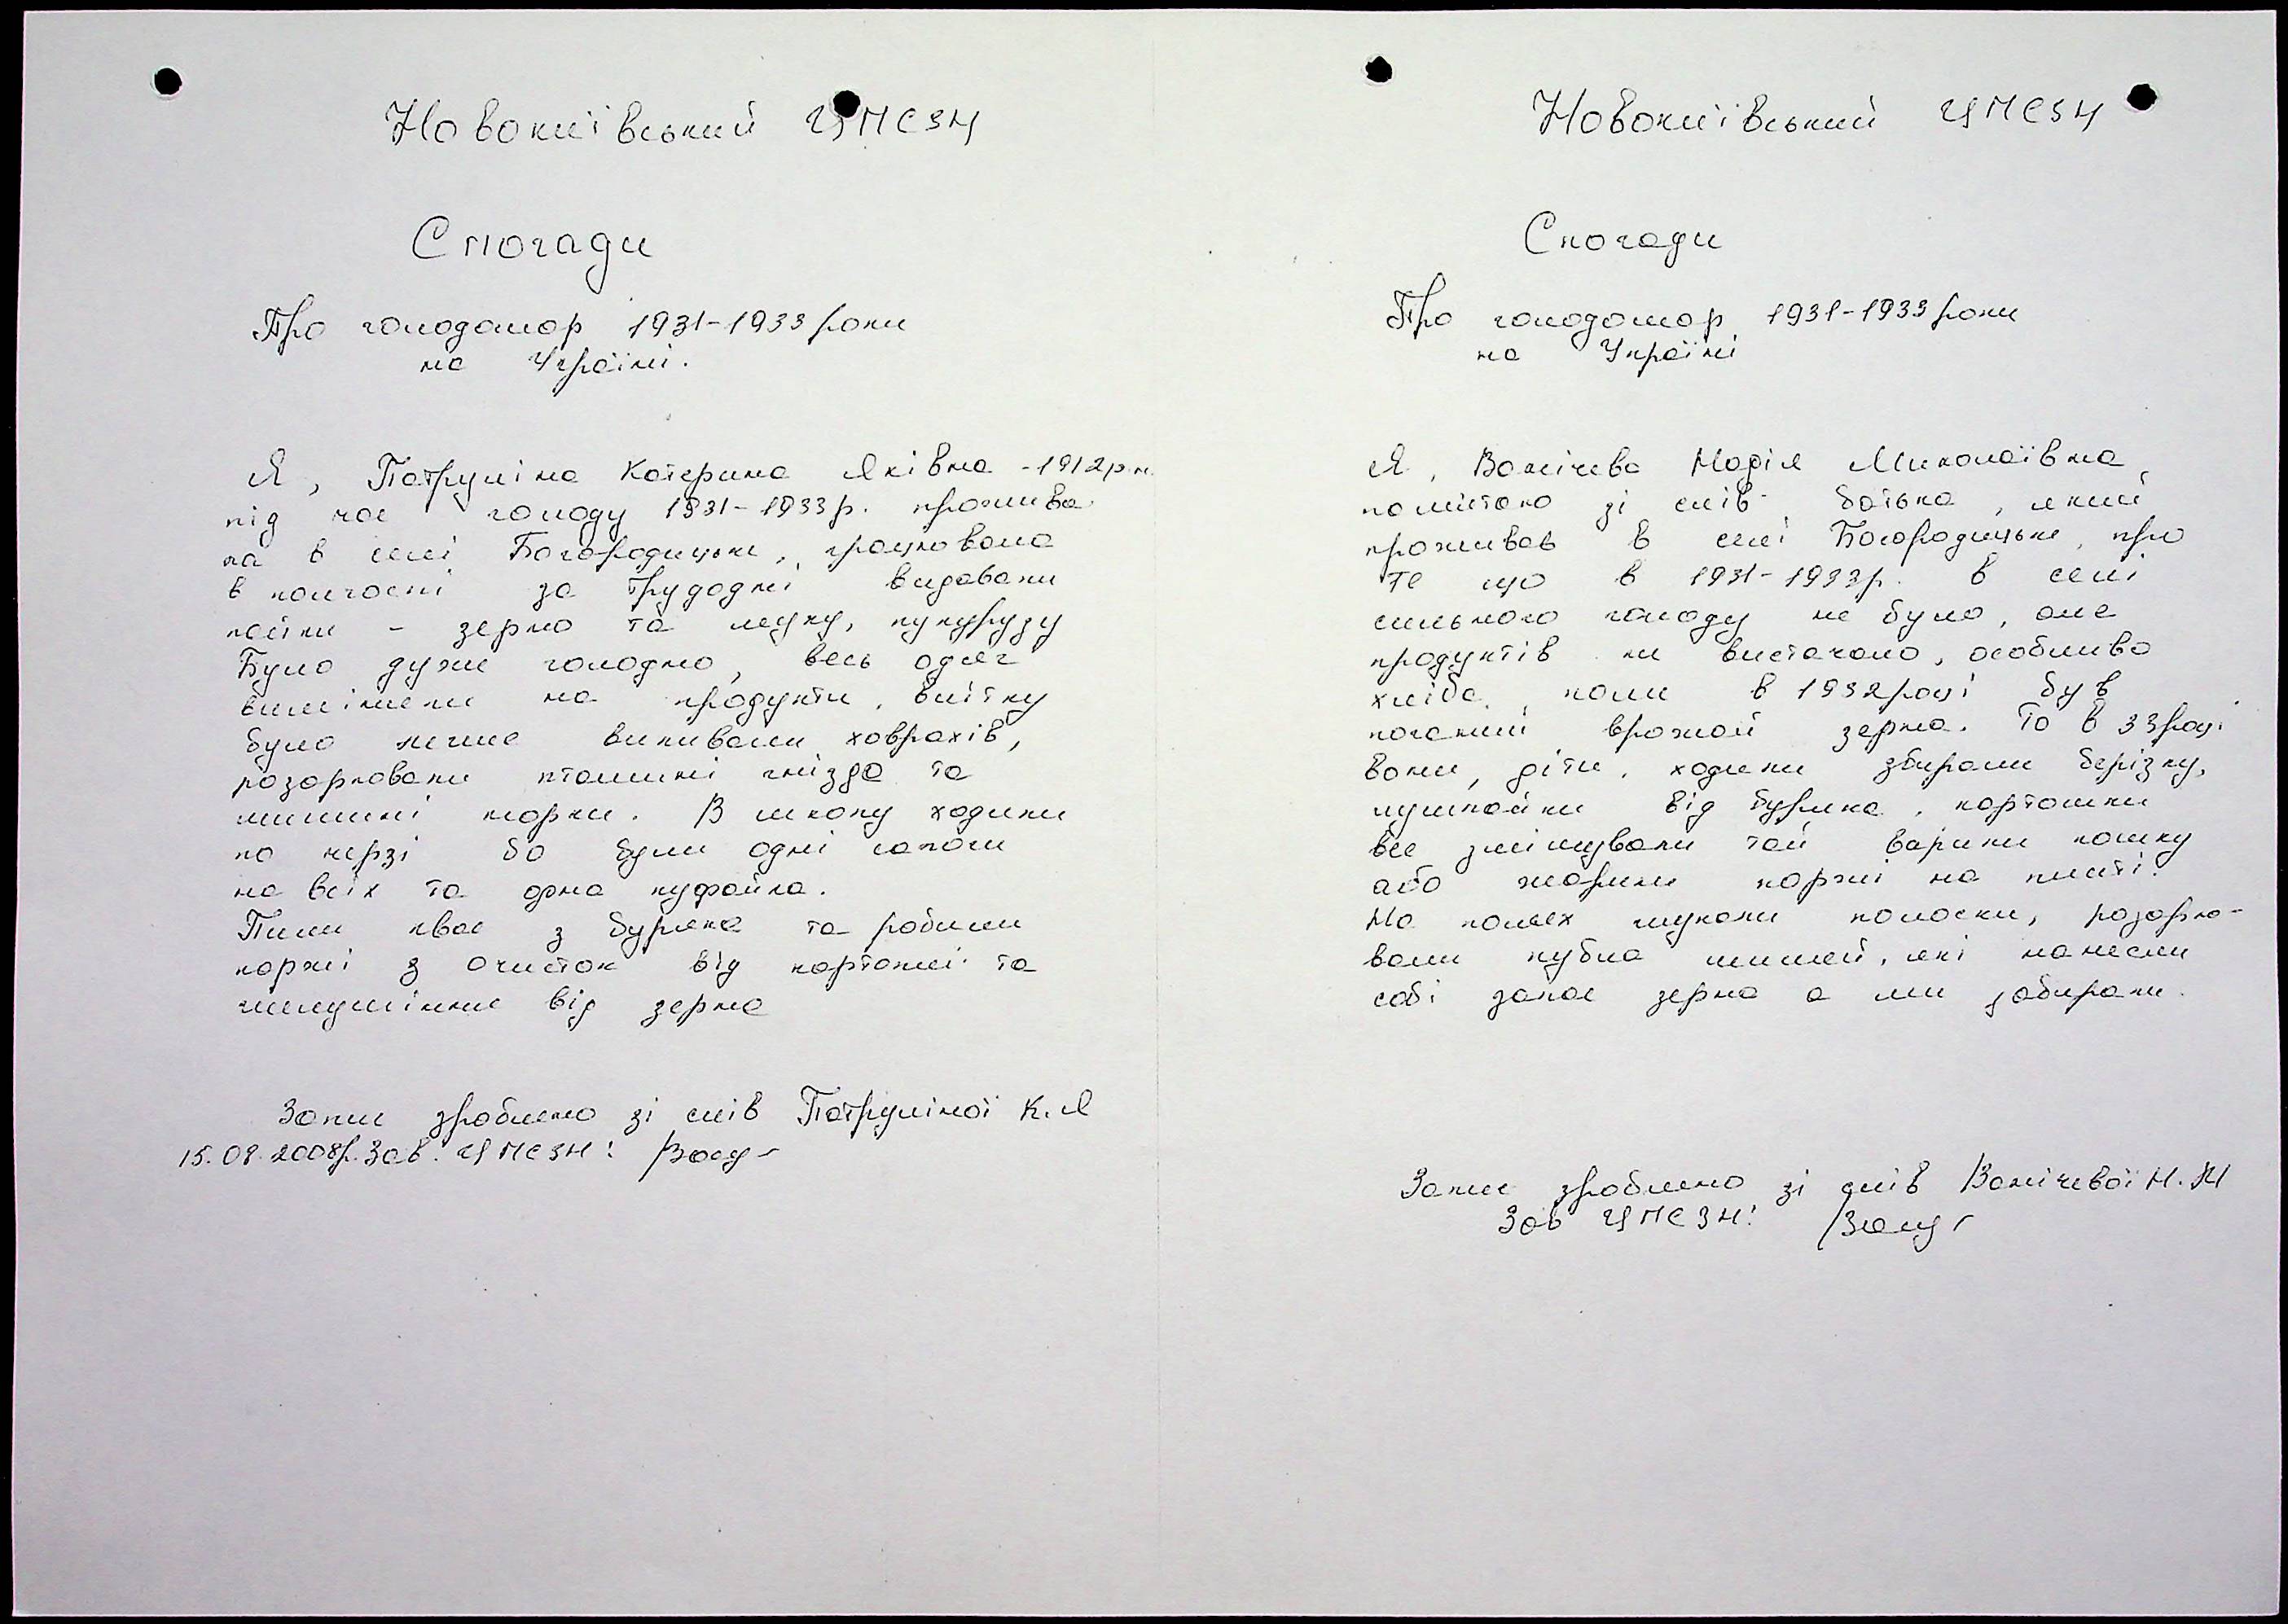 Новокиївський ЦПСЗН
Спогади
Про голодомор 1931-1933 роки
на Україні.
Я, Патруліна Катерина Яківна - 1912р.н.
під час голоду 1931-1933р. прожива
ла в селі Богородицьке, працювала
в колгоспі за трудодні видавали
пайки - зерно та муку, кукурузу
Було дуже голодно, весь одяг
виміняли на продукти, влітку
було легше виливали ховрахів,
розорювали пташині гнізда та
мишині норки. В школу ходили
по черзі бо були одні сапоги
на всіх та одна куфайка.
Пили квас з буряка та робили
коржі з очисток від картоплі та
шелушіння від зерна
Запис зроблено зі слів Патруліної К.Я
15.08.2008р. Зав. ЦПСЗН:
Новокиївський ЦПСЗН
Спогади
Про голодомор 1931-1933 роки
на Україні
Я, Ванічева Надія Миколаївна,
памятаю зі слів батька, який
проживав в селі Богородицьке, про
те що в 1931-1933р. в селі
сильного голоду не було, але
продуктів не вистачало, особливо
хліба, коли в 1932 році був
поганий врожай зерна. То в 33 році
вони, діти, ходили збирали берізку,
лушпайки від буряка, картошки
все змішували тай варили кашку
або жарили коржі на плиті.
На полях шукали колоски, розорю-
вали кубла мишей, які нанесли
собі запас зерна а ми забирали.
Запис зроблено зі слів Ванічевої Н.М
Зав ЦПСЗН: